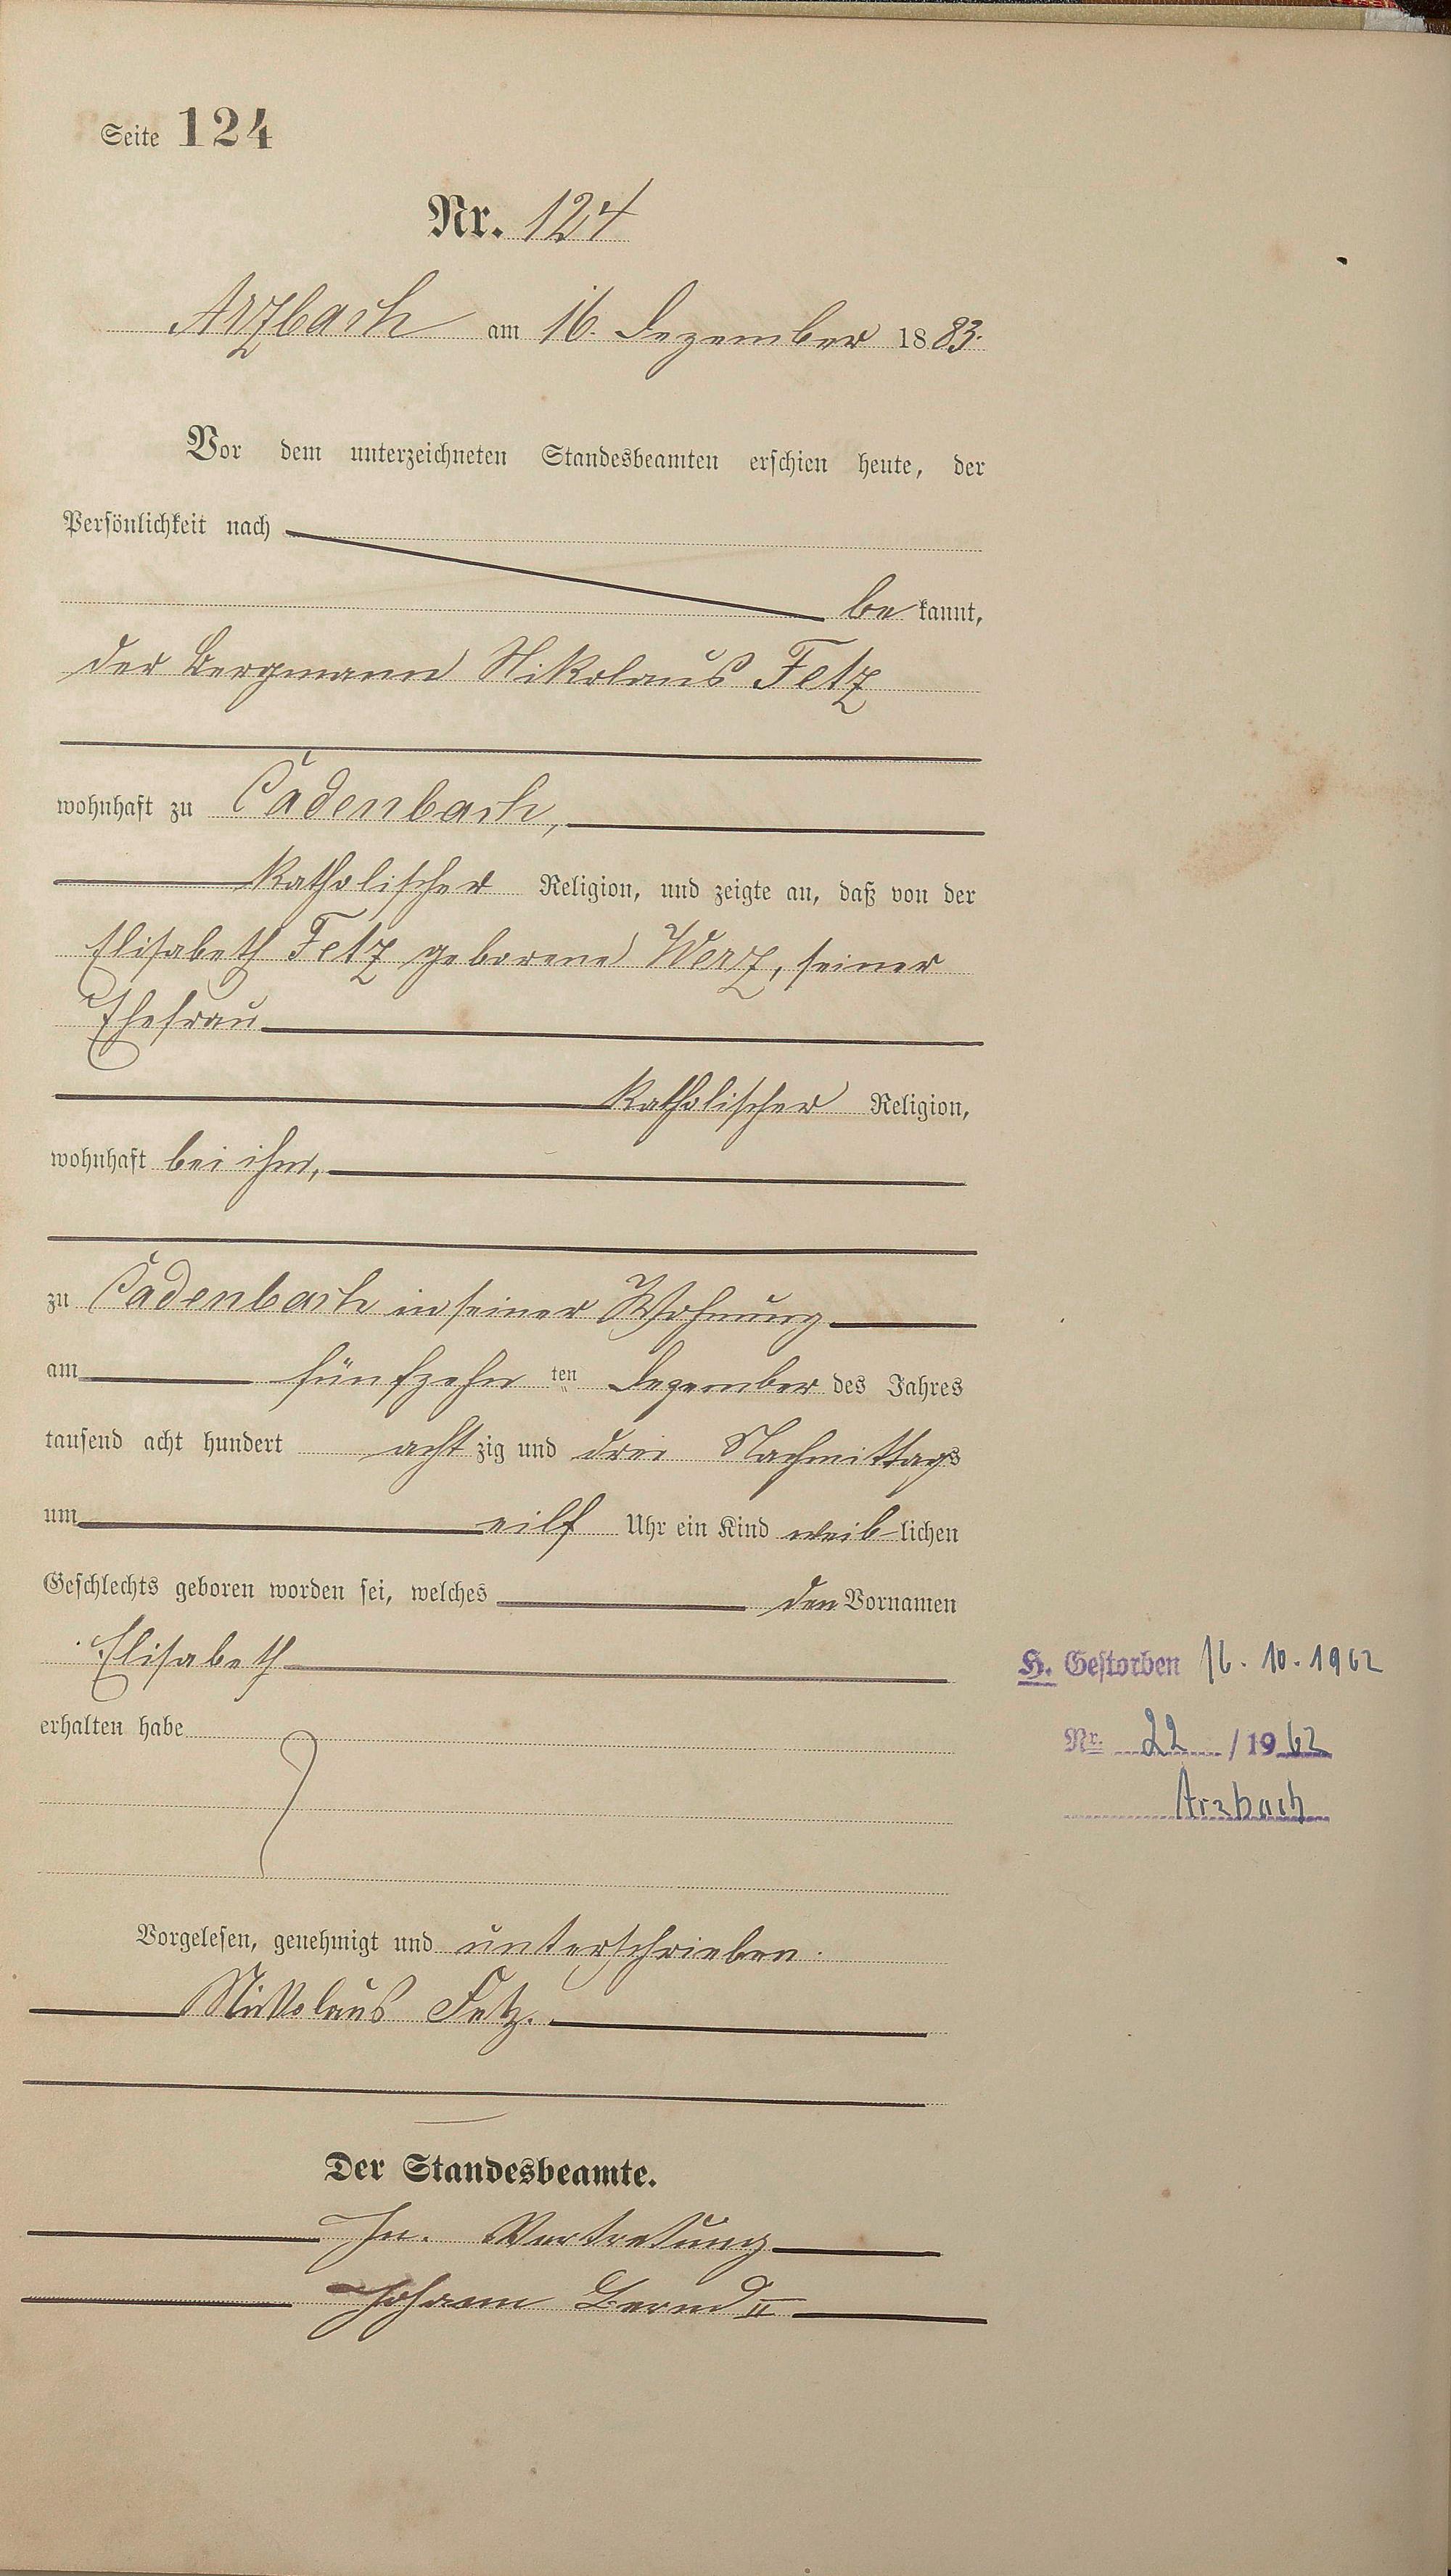 Seite 124
Nr. 124
Arzbach am 16. Dezember 1883.
Vor dem unterzeichneten Standesbeamten erschien heute, der
Persönlichkeit nach
be kannt,
der Bergmann Nikolaus Fetz
wohnhaft zu Cadenbach,
katholischer Religion, und zeigte an, daß von der
Elisabeth Fetz geborene Werz, seiner
Ehefrau
katholischer Religion,
wohnhaft bei ihm,
zu Cadenbach in seiner Wohnung
am fünfzehn ten Dezember des Jahres
tausend acht hundert acht zig und drei Nachmittags
um eilf Uhr ein Kind weib-lichen
Geschlechts geboren worden sei, welches den Vornamen
Elisabeth
H. Gestorben 16. 10. 1962
erhalten habe
Nr. 22 / 1962
Arzbach
Vorgelesen, genehmigt und unterschrieben.
Nikolaus Fetz.
Der Standesbeamte.
In Vertretung
Johann Bernd II